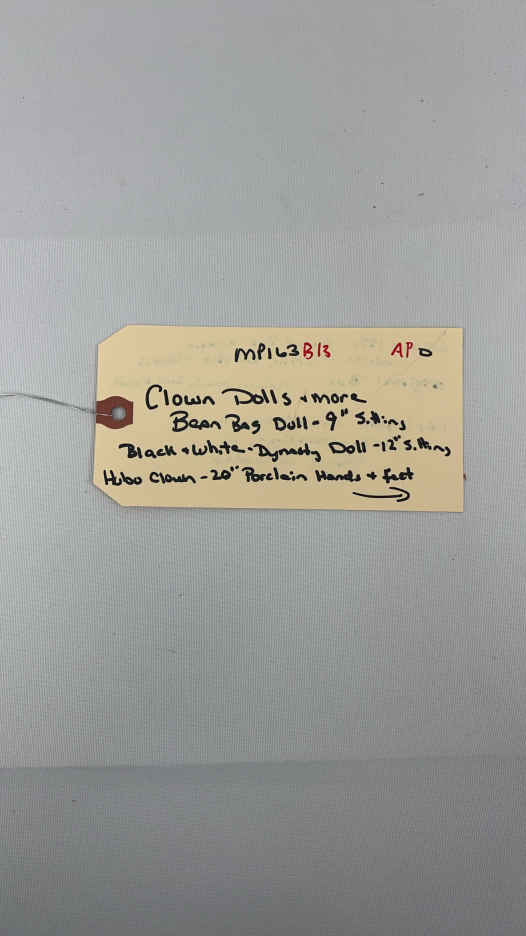 MP163 B13 APO
Clown Dolls + more
Bean Bag Doll - 9" Sitting
Black + White - Dynasty Doll - 12" Sitting
Hobo Clown - 20" Porclain Hands + feet